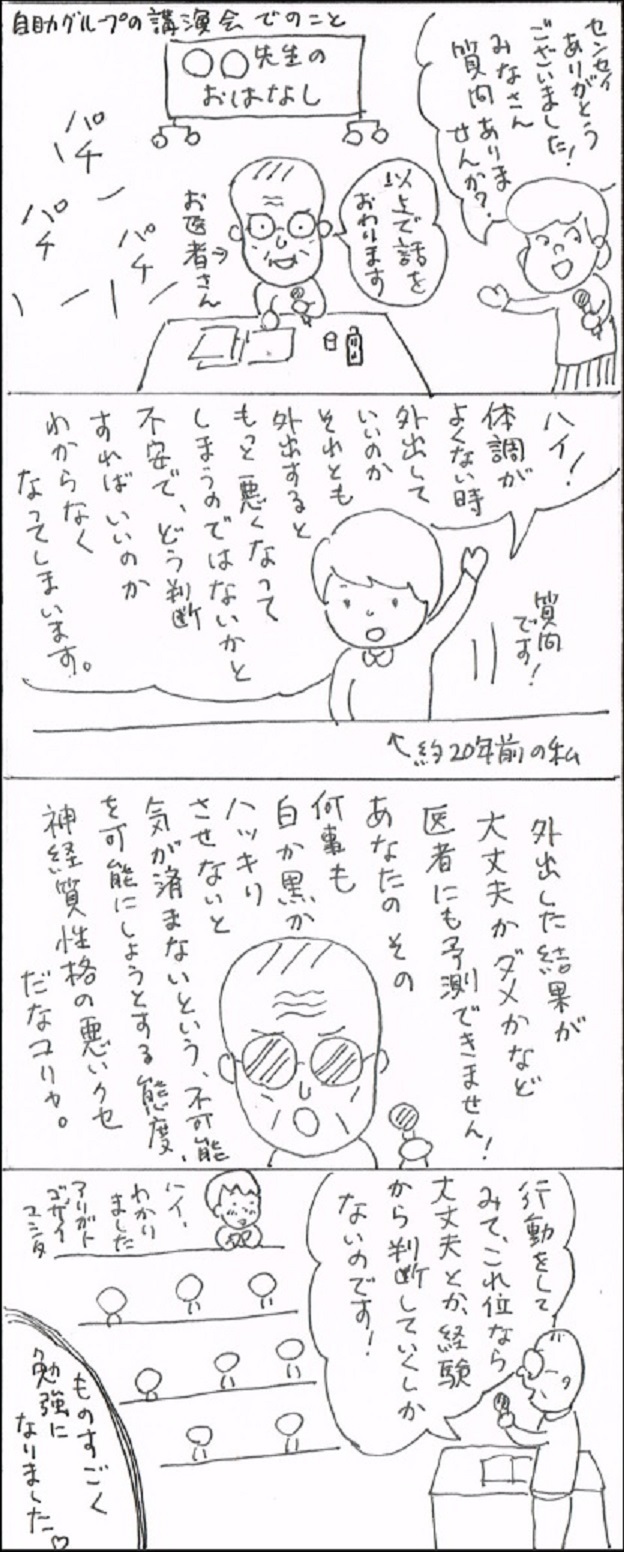 自助グループの講演会でのこと
○○先生の
おはなし
センセイ
ありがとう
ございました!
みなさん
質問ありま
せんか?
以上で話を
おわります
お医者さん→
パチ
パチ
パチ
ハイ!
体調が
よくない時
外出して
いいのか
それとも
外出すると
もっと悪くなって
しまうのではないかと
不安で、どう判断
すればいいのか
わからなく
なってしまいます。
質問
です!
←約20年前の私
外出した結果が
大丈夫かダメかなど
医者にも予測できません!
あなたのその
何事も
白か黒か
ハッキリ
させないと
気が済まないという、不可能
を可能にしようとする態度、
神経質性格の悪いクセ
だなコリャ。
行動をして
みて、これ位なら
大丈夫とか、経験
から判断していくしか
ないのです!
ハイ、
わかり
ました
アリガト
ゴザイ
マシタ
ものすごく
勉強に
なりました♡